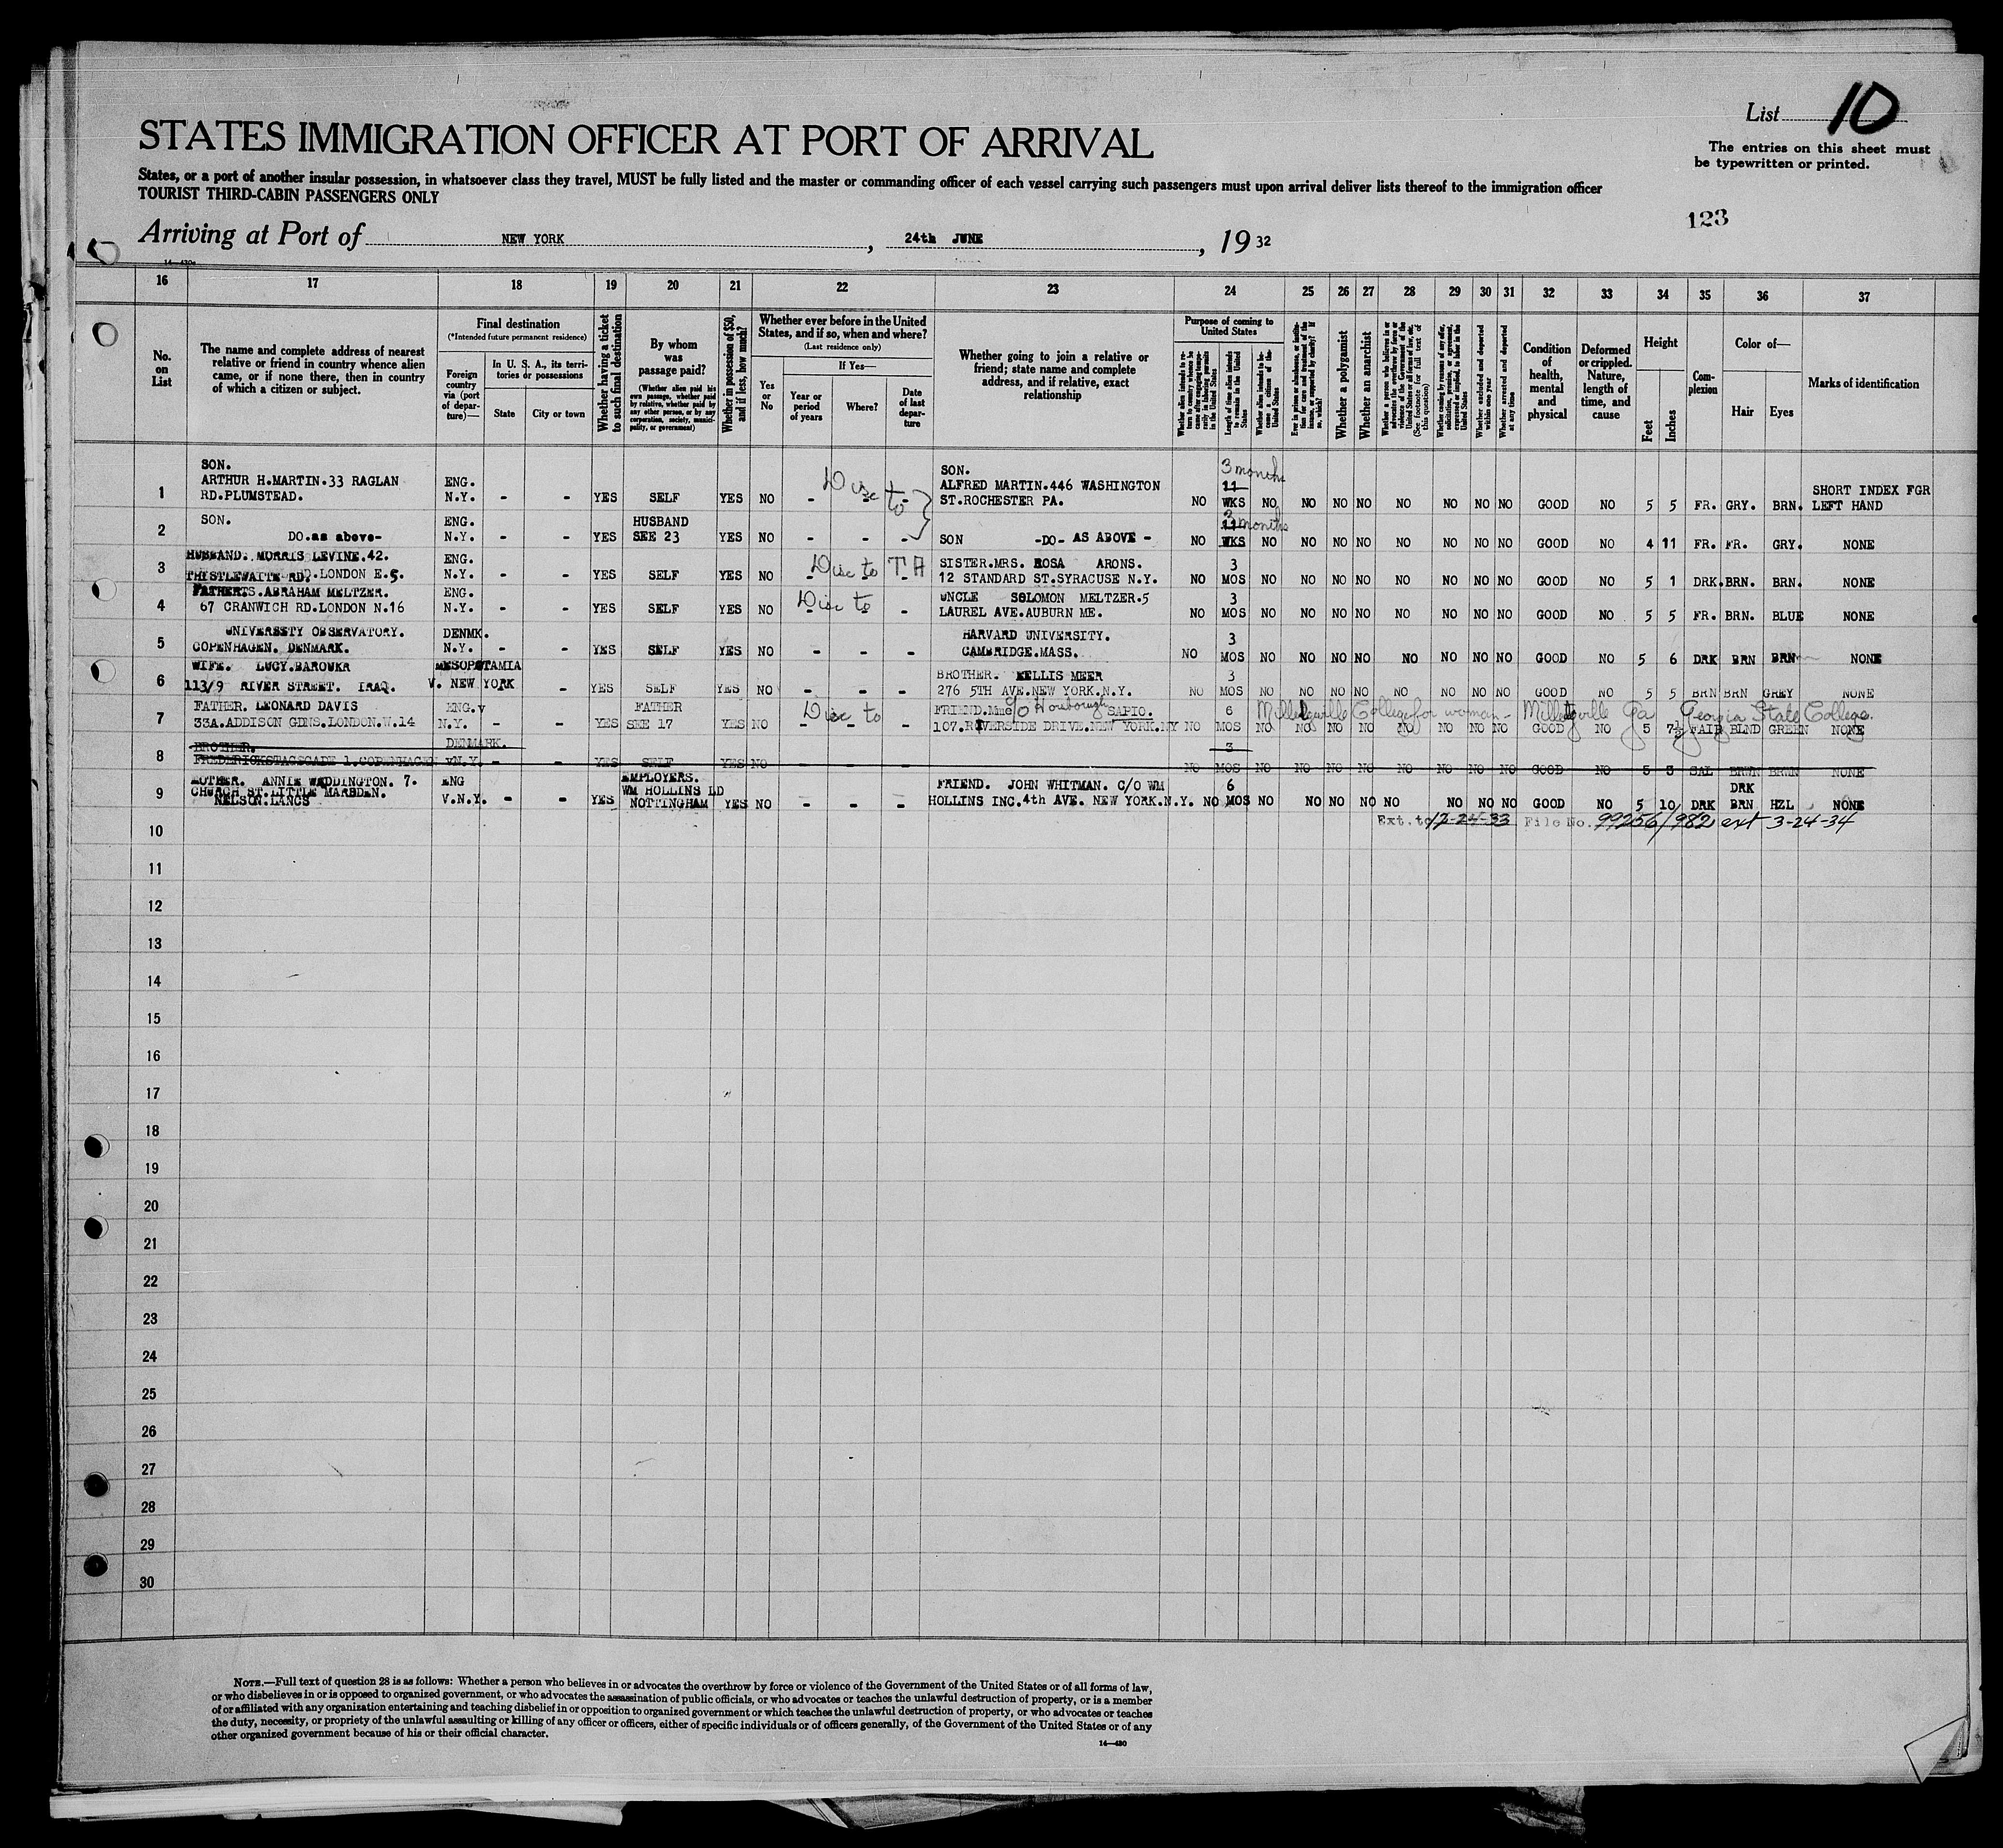 List 10
The entries on this sheet must
be typewritten or printed.
STATES IMMIGRATION OFFICER AT PORT OF ARRIVAL
States, or a port of another insular possession, in whatsoever class they travel, MUST be fully listed and the master or commanding officer of each vessel carrying such passengers must upon arrival deliver lists thereof to the immigration officer
TOURIST THIRD-CABIN PASSENGERS ONLY
123
Arriving at Port of NEW YORK, 24th JUNE, 19 32
16 17 18 19 20 21 22 23 24 25 26 27 28 29 30 31 32 33 34 35 36 37
No. on List
The name and complete address of nearest
relative or friend in country whence alien
came, or if none there, then in country
of which a citizen or subject.
Final destination
(*Intended future permanent residence)
Foreign country via (port of departure)—
In U. S. A., its territories or possessions
State
City or town
Whether having a ticket to such final destination
By whom was passage paid?
(Whether alien paid his own passage, whether paid by relative, whether paid by any other person, or by any corporation, society, municipality, or government)
Whether in possession of $50, and if less, how much?
Whether ever before in the United States, and if so, when and where?
(Last residence only)
Yes or No
If Yes—
Year or period of years
Where?
Date of last departure
Whether going to join a relative or
friend; state name and complete
address, and if relative, exact
relationship
Purpose of coming to United States
Length of time alien intends to remain in the United States
Whether alien intends to become a citizen of the United States
Whether a polygamist
Whether an anarchist
(See footnote for full text of this question)
Whether excluded and deported within one year
Whether arrested and deported at any time
Condition of health, mental and physical
Deformed or crippled. Nature, length of time, and cause
Height
Feet
Inches
Complexion
Color of—
Hair
Eyes
Marks of identification
1 SON. ARTHUR H.MARTIN.33 RAGLAN RD.PLUMSTEAD. ENG. N.Y. - - YES SELF YES NO - - - Disc to SON. ALFRED MARTIN.446 WASHINGTON ST.ROCHESTER PA. NO 3 months 11 WKS NO NO NO NO NO NO NO NO GOOD NO 5 5 FR. GRY. BRN. SHORT INDEX FGR LEFT HAND
2 SON. DO.as above- ENG. N.Y. - - YES HUSBAND SEE 23 YES NO - - - SON -DO- AS ABOVE - NO 3 months 11 WKS NO NO NO NO NO NO NO NO GOOD NO 4 11 FR. FR. GRY. NONE
3 HUSBAND. MORRIS LEVINE.42. THISTLEWAITE RD.LONDON E.5. ENG. N.Y. - - YES SELF YES NO - - - Disc to T A SISTER.MRS. ROSA ARONS. 12 STANDARD ST.SYRACUSE N.Y. NO 3 MOS NO NO NO NO NO NO NO NO GOOD NO 5 1 DRK. BRN. BRN. NONE
4 FATHER.S.ABRAHAM MELTZER. 67 CRANWICH RD.LONDON N.16 ENG. N.Y. - - YES SELF YES NO - - Disc to UNCLE SOLOMON MELTZER.5 LAUREL AVE.AUBURN ME. NO 3 MOS NO NO NO NO NO NO NO NO GOOD NO 5 5 FR. BRN. BLUE NONE
5 UNIVERSITY OBSERVATORY. COPENHAGEN. DENMARK. DENMK. N.Y. - - YES SELF YES NO - - - HARVARD UNIVERSITY. CAMBRIDGE.MASS. NO 3 MOS NO NO NO NO NO NO NO NO GOOD NO 5 6 DRK BRN BRN NONE
6 WIFE. LUCY.BAROUKR 113/9 RIVER STREET. IRAQ. MESOPOTAMIA V. NEW YORK - YES SELF YES NO - - - BROTHER. KELLIS MEER 276 5TH AVE.NEW YORK.N.Y. NO 3 MOS NO NO NO NO NO NO NO NO GOOD NO 5 5 BRN BRN GREY NONE
7 FATHER. LEONARD DAVIS 33A.ADDISON GDNS.LONDON.W.14 ENG.v N.Y. - - YES FATHER SEE 17 YES NO - - - Disc to FRIEND.Mme SAPIO. 107.RIVERSIDE DRIVE.NEW YORK.NY NO 6 MOS NO NO NO NO NO NO NO NO GOOD NO 5 7½ FAIR BLND GREEN NONE
Milledgeville College for woman - Milledgville Ga Georgia State College.
8 BROTHER. FREDERICKSTAGSGADE 1.COPENHAGEN DENMARK. vN.Y. - - YES SELF YES NO - - - NO 3 MOS NO NO NO NO NO NO NO NO GOOD NO 5 3 SAL BRWN BRWN NONE
9 MOTHER. ANNIE WADDINGTON. 7- CHURCH ST.LITTLE MARSDEN. NELSON.LANCS ENG V.N.Y. - - YES EMPLOYERS. WM HOLLINS LD NOTTINGHAM YES NO - - - FRIEND. JOHN WHITMAN. C/O WM HOLLINS INC.4th AVE. NEW YORK.N.Y. NO 6 MOS NO NO NO NO NO NO NO NO GOOD NO 5 10 DRK DRK BRN HZL NONE
10 Ext. to 12-24-33 File No. 99256/982 ext 3-24-34
11
12
13
14
15
16
17
18
19
20
21
22
23
24
25
26
27
28
29
30
NOTE.—Full text of question 28 is as follows: Whether a person who believes in or advocates the overthrow by force or violence of the Government of the United States or of all forms of law,
or who disbelieves in or is opposed to organized government, or who advocates the assassination of public officials, or who advocates or teaches the unlawful destruction of property, or is a member
of or affiliated with any organization entertaining and teaching disbelief in or opposition to organized government or which teaches the unlawful destruction of property, or who advocates or teaches
the duty, necessity, or propriety of the unlawful assaulting or killing of any officer or officers, either of specific individuals or of officers generally, of the Government of the United States or of any
other organized government because of his or their official character.
14—430